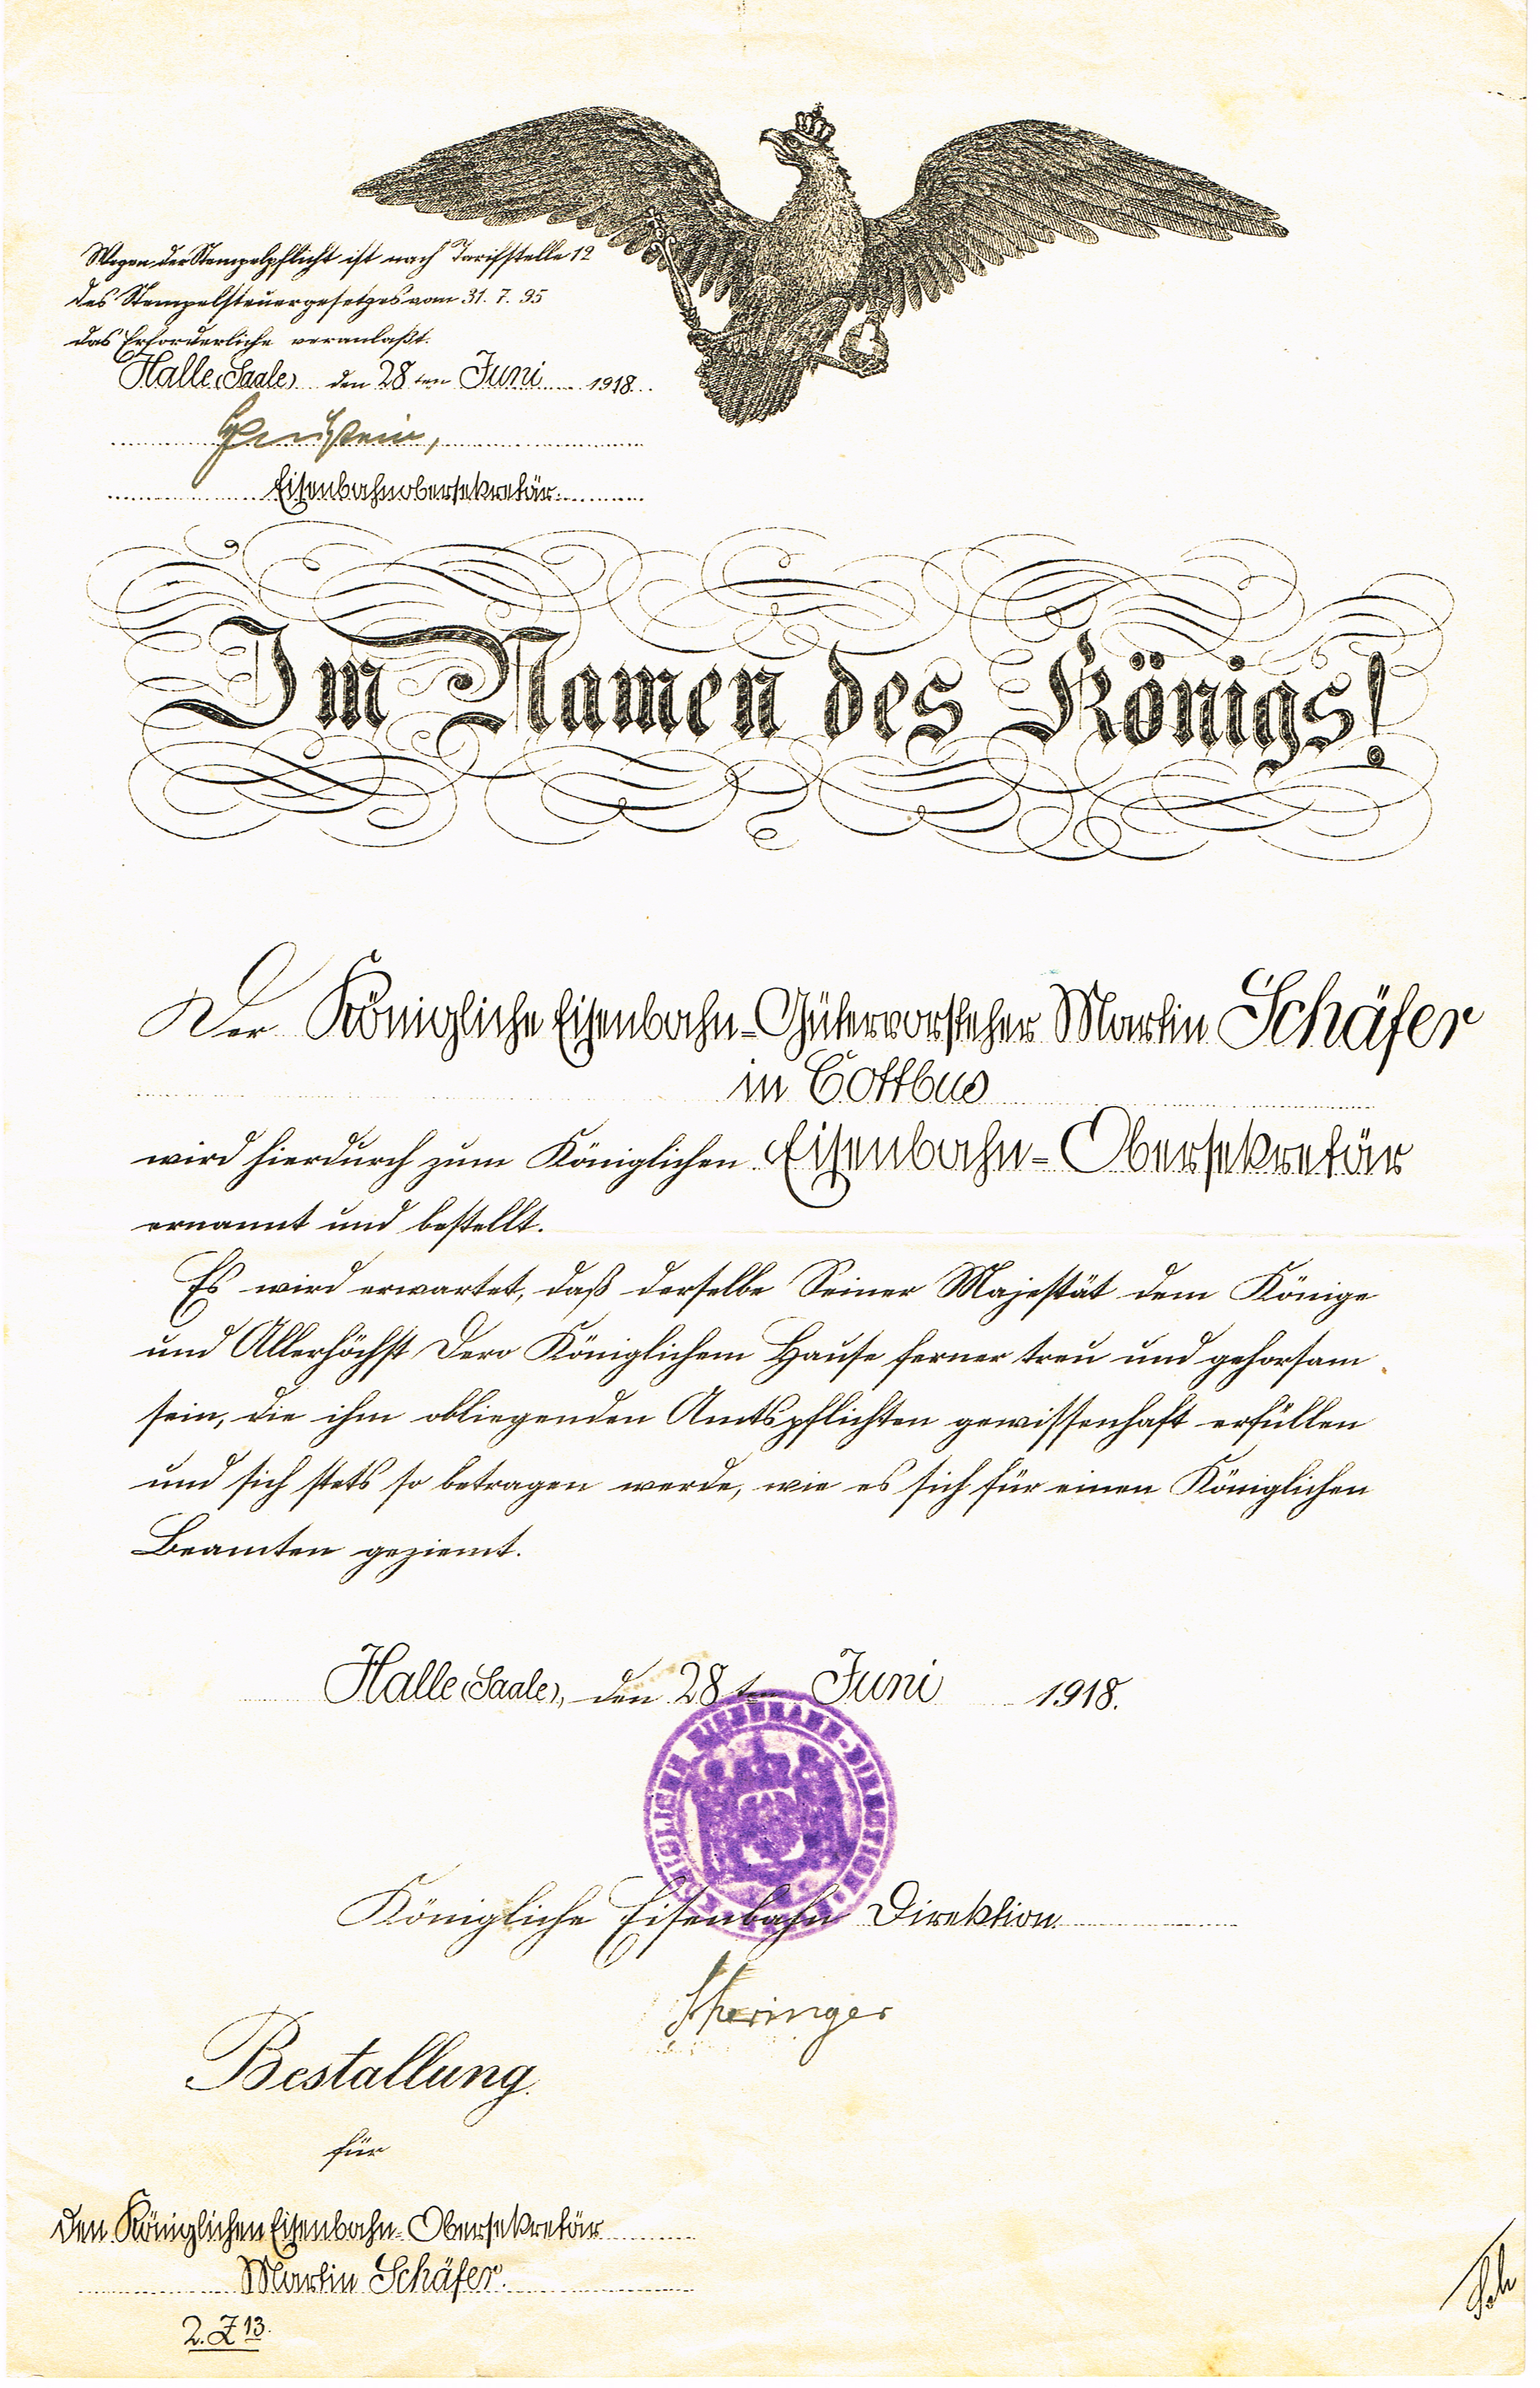 Wegen der Stempelpflicht ist nach Tarifstelle 12
des Stempelsteuergesetzes vom 31. 7. 95
das Erforderliche veranlaßt.
Halle (Saale) den 28ten Juni 1918.
Eisenbahnobersekretär.
Im Namen des Königs!
Der Königliche Eisenbahn-Gütervorsteher Martin Schäfer
in Cottbus
wird hierdurch zum Königlichen Eisenbahn-Obersekretär
ernannt und bestellt.
Es wird erwartet, daß derselbe Seiner Majestät dem Könige
und Allerhöchst Dero Königlichem Hause ferner treu und gehorsam
sein, die ihm obliegenden Amtspflichten gewissenhaft erfüllen
und sich stets so betragen werde, wie es sich für einen Königlichen
Beamten geziemt.
Halle (Saale), den 28ten Juni 1918.
KÖNIGLICHE EISENBAHN-DIREKTION
Königliche Eisenbahn Direktion.
Bestallung
für
den Königlichen Eisenbahn-Obersekretär
Martin Schäfer.
2. Z 13.